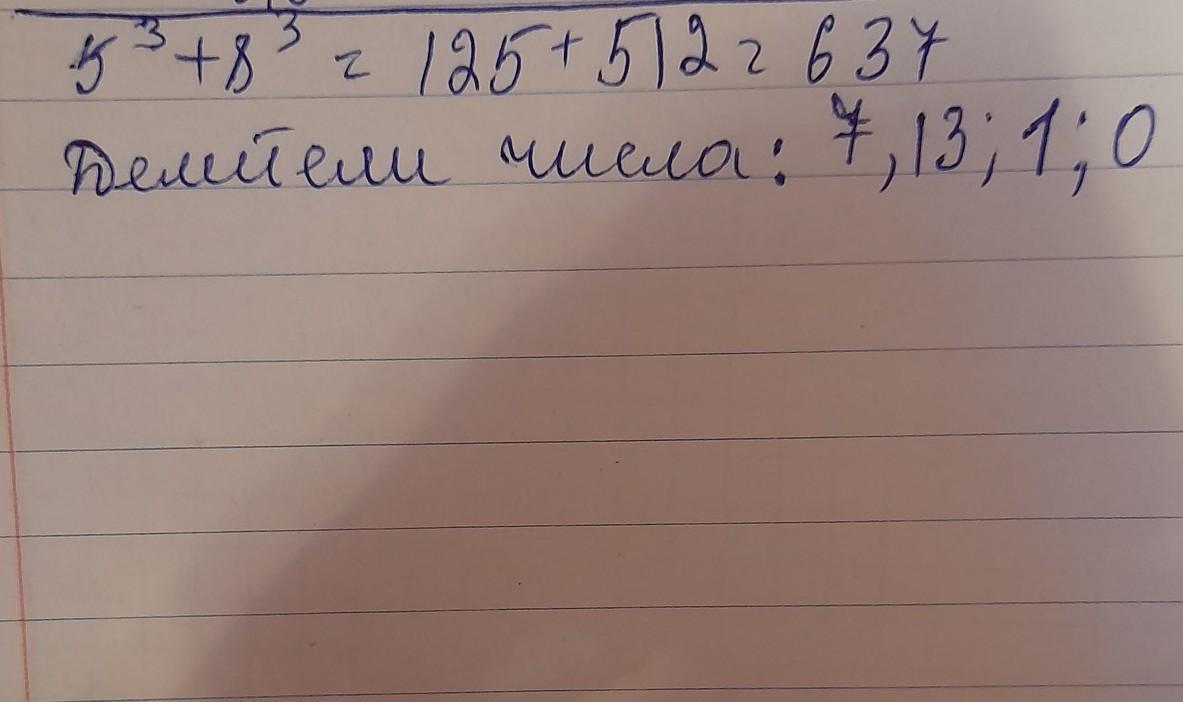 5³+8³ = 125+512 = 637
Делители числа: 7, 13; 1; 0